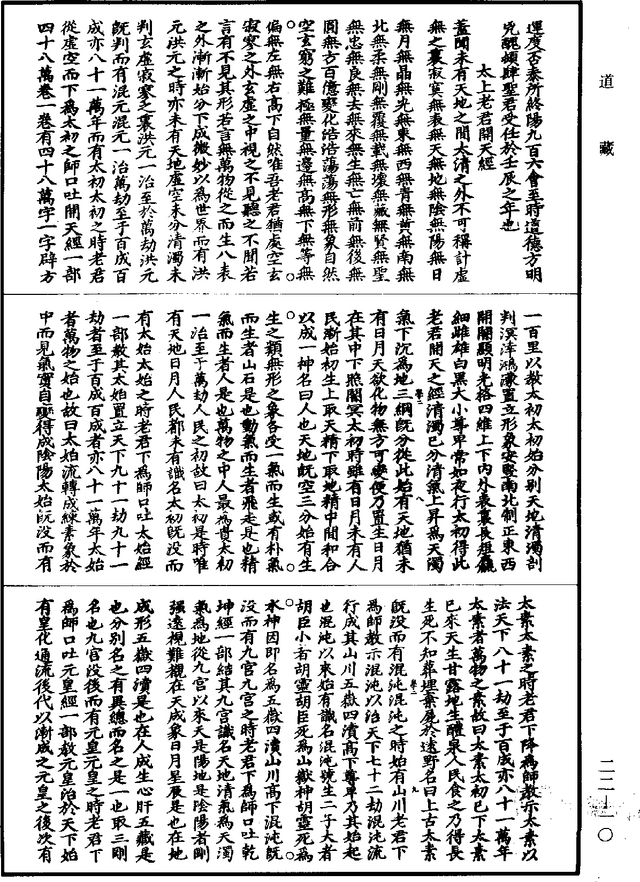 運度否泰所終陽九百六會至時道德方明
兇醜頓肆聖君受任於壬辰之年也
太上老君開天經
蓋聞未有天地之間太清之外不可稱計虛
無之裏寂寞無表無天無地無陰無陽無日
無月無晶無光無東無西無青無黃無南無
北無柔無剛無覆無載無壞無藏無賢無聖
無忠無良無去無來無生無亡無前無後無
圓無方百億變化浩浩蕩蕩無形無象自然
空玄窮之難極無量無邊無高無下無等無
偏無左無右高下自然唯吾老君猶處空玄
寂寥之外玄虛之中視之不見聽之不聞若
言有不見其形若言無萬物從之而生八表
之外漸漸始分下成微妙以為世界而有洪
元洪元之時亦未有天地虛空未分清濁未
判玄虛寂寥之裏洪元一治至於萬劫洪元
既判而有混元混元一治萬劫至于百成百
成亦八十一萬年而有太初太初之時老君
從虛空而下為太初之師口吐開天經一部
四十八萬卷一卷有四十八萬字一字辟方
一百里以教太初太初始分別天地清濁剖
判溟涬鴻濛置立形象安竪南北制正東西
開闇顯明光格四維上下內外表裏長短麤
細雌雄白黑大小尊卑常如夜行太初得此
老君開天之經清濁已分清氣上昇為天濁
氣下沉為地三綱既分從此始有天地猶未
有日月天欲化物無方可變便乃置生日月
在其中下照闇冥太初時雖有日月未有人
民漸始初生上取天精下取地精中間和合
以成一神名曰人也天地既空三分始有生
生之類無形之象各受一氣而生或有朴氣
而生者山石是也動氣而生者飛走是也精
氣而生者人是也萬物之中人最為貴太初
一治至于萬劫人民之初故曰太初是時唯
有天地日月人民都未有識名太初既沒而
有太始太始之時老君下為師口吐太始經
一部教其太始置立天下九十一劫九十一
劫者至于百成百成者亦八十一萬年太始
者萬物之始也故曰太始流轉成練素象於
中而見氣實自變得成陰陽太始既沒而有
太素太素之時老君下降為師教示太素以
法天下八十一劫至于百成亦八十一萬年
太素者萬物之素故曰太素太初已下太素
已來天生甘露地生醴泉人民食之乃得長
生死不知葬埋棄屍於遠野名曰上古太素
既沒而有混沌混沌之時始有山川老君下
為師教示混沌以治天下七十二劫混沌流
行成其山川五嶽四瀆高下尊卑乃其始起
也混沌以來始有識名混沌號生二子大者
胡臣小者胡靈胡臣死為山嶽神胡靈死為
水神因即名為五嶽四瀆山川高下混沌既
沒而有九宮九宮之時老君下為師口吐乾
坤經一部結其九宮識名天地清氣為天濁
氣為地從九宮以來天是陽地是陰陽者剛
強遠視難覩在天成象日月星辰是也在地
成形五嶽四瀆是也在人成生心肝五藏是
也分別名之有異總而名之是一也取三剛
名也九宮沒後而有元皇元皇之時老君下
為師口吐元皇經一部教元皇治於天下始
有皇化通流後代以漸成之元皇之後次有
道藏
二二一一〇